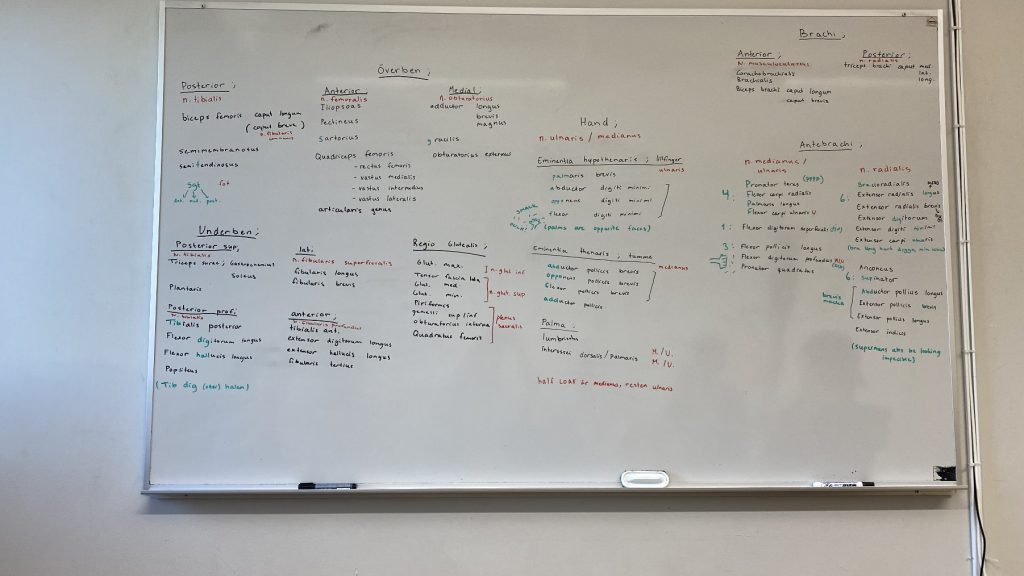 Överben;
Posterior;
n. tibialis
biceps femoris caput longum
(caput breve)
n. fibularis communis
semimembranotus
semitendinosus
Sgt fot
Anterior;
n. femoralis
Iliopsoas
Pectineus
Sartorius
Quadriceps femoris
- rectus femoris
- vastus medialis
- vastus intermedius
- vastus lateralis
articularis genus
Medial;
n. obturatorius
adductor longus
brevis
magnus
gracilis
obturatorius externus
Underben;
Posterior sup;
n. tibialis
Triceps surae; Gastrocnemius
Soleus
Plantaris
Posterior prof;
n. tibialis
Tibialis posterior
Flexor digitorum longus
Flexor hallucis longus
Popliteus
(Tib dig (over) halen)
lat;
n. fibularis superficialis
fibularis longus
fibularis brevis
anterior;
n. fibularis profundus
tibialis ant.
extensor digitorum longus
extensor hallucis longus
fibularis tertius
Regio Glutealis;
Glut. max. n. glut inf
Tensor fascia lata
Glut. med. n. glut. sup
Glut. min.
Piriformis
gemelli sup/inf plexus sacralis
obturatorius interna
Quadratus femoris
Hand;
n. ulnaris / medianus
Eminentia hypothenaris; lillfinger
ulnaris
palmaris brevis
abductor digiti minimi
opponens digiti minimi
flexor digiti minimi
(palms are opposite faces)
Eminentia thenaris; tumme
medianus
abductor pollicis brevis
opponens pollicis brevis
flexor pollicis brevis
adductor pollicis
Palma;
lumbricus
Interossei dorsalis/palmaris M./U.
M./U.
half LOAF är medianus, resten ulnaris
Brachi;
Anterior;
N. musculocutaneus
Corachobrachialis
Brachialis
Biceps brachi caput longum
caput brevis
Posterior;
n. radialis
triceps brachi caput med.
lat.
long.
Antebrachi;
n. medianus/
ulnaris
Pronator teres (PFPF)
4: Flexor carpi radialis
Palmaris longus
Flexor carpi ulnaris U
1: Flexor digitorum superficali
3: Flexor pollicis longus
Flexor digitorum profundus M/U
Pronator quadratus
n. radialis
Brachioradialis
6: Extensor radialis longus
Extensor radialis brevis
Extensor digitorum
Extensor digiti minimi
Extensor carpi ulnaris
Anconeus
6: supinator
Abductor pollicis longus
Extensor pollicis brevis
Extensor pollicis longus
Extensor indicis
(supermans abs be looking
impecible)